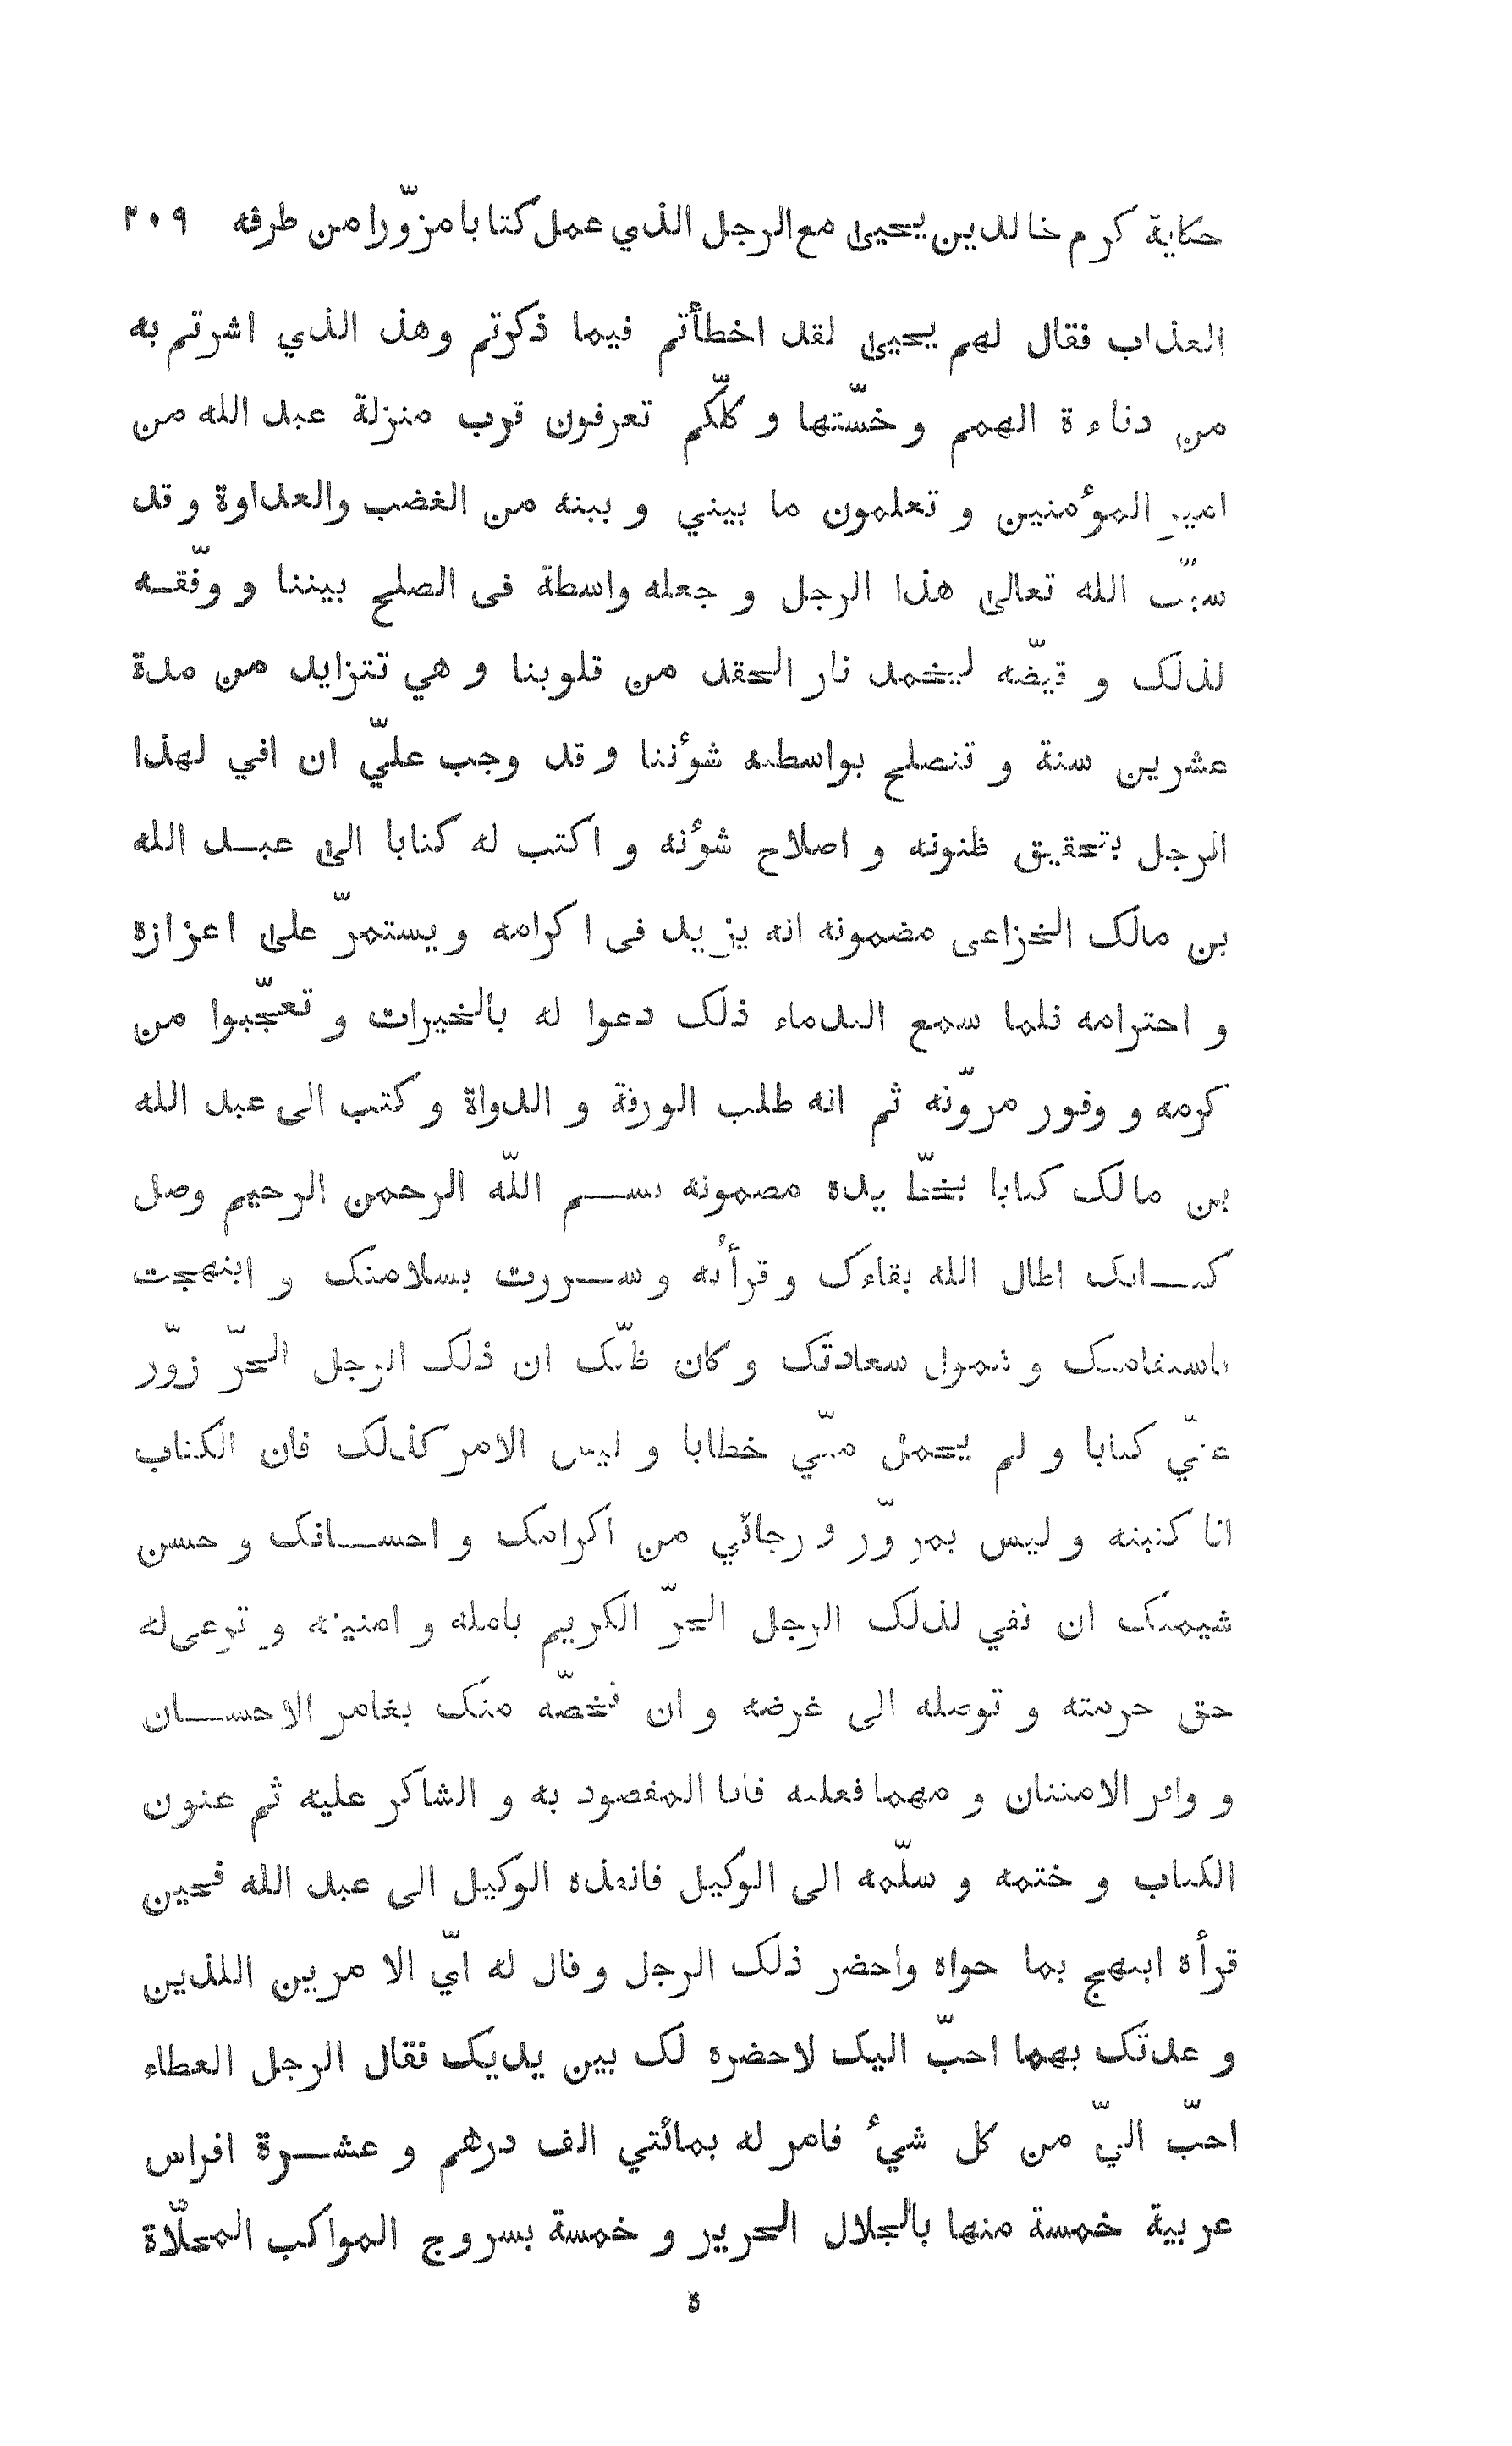 حكاية كرم خالد بن يحيى مع الرجل الذي عمل كتابا مزوّرا من طرفه ٣٠٩
العذاب فقال لهم يحيى لقد اخطأتم فيما ذكرتم وهذ الذي اشرتم به
من دناءة الهمم و خسّتها و كلّكم تعرفون قرب منزلة عبد الله من
امير المؤمنين و تعلمون ما بيني و بينه من الغضب والعداوة و قد
سبّب الله تعالى هذا الرجل و جعله واسطة فى الصلح بيننا و وفّقه
لذلك و قيّضه ليخمد نار الحقد من قلوبنا و هي تتزايد من مدة
عشرين سنة و تنصلح بواسطته شؤننا و قد وجب عليّ ان افي لهذا
الرجل بتحقيق ظنونه و اصلاح شؤنه و اكتب له كتابا الى عبد الله
بن مالك الخزاعى مضمونه انه يزيد فى اكرامه و يستمرّ على اعزازه
و احترامه فلما سمع الندماء ذلك دعوا له بالخيرات و تعجّبوا من
كرمه و وفور مروّته ثم انه طلب الورقة و الدواة و كتب الى عبد الله
بن مالك كتابا بخطّ يده مضمونه بسم اللّه الرحمن الرحيم وصل
كتابك اطال الله بقاءك و قرأته و سررت بسلامتك و ابتهجت
باستقامتك و شمول سعادتك و كان ظنّك ان ذلك الرجل الحرّ زوّر
عنّي كتابا و لم يحمل منّي خطابا و ليس الامر كذلك فان الكتاب
انا كتبته و ليس بمزوّر و رجائي من اكرامك و احسانك و حسن
شيمتك ان تفي لذلك الرجل الحرّ الكريم بامله و امنيته و ترعى له
حق حرمته و توصله الى غرضه و ان تخصّه منك بغامر الاحسان
و وافر الامتنان و مهما فعلته فانا المقصود به و الشاكر عليه ثم عنون
الكتاب و ختمه و سلّمه الى الوكيل فانفذه الوكيل الى عبد الله فحين
قرأه ابتهج بما حواه واحضر ذلك الرجل و قال له ايّ الامرين اللذين
و عدتك بهما احبّ اليك لاحضره لك بين يديك فقال الرجل العطاء
احبّ اليّ من كل شئ فامر له بمائتي الف درهم و عشرة افراس
عربية خمسة منها بالجلال الحرير و خمسة بسروج المواكب المحلّاة
ة